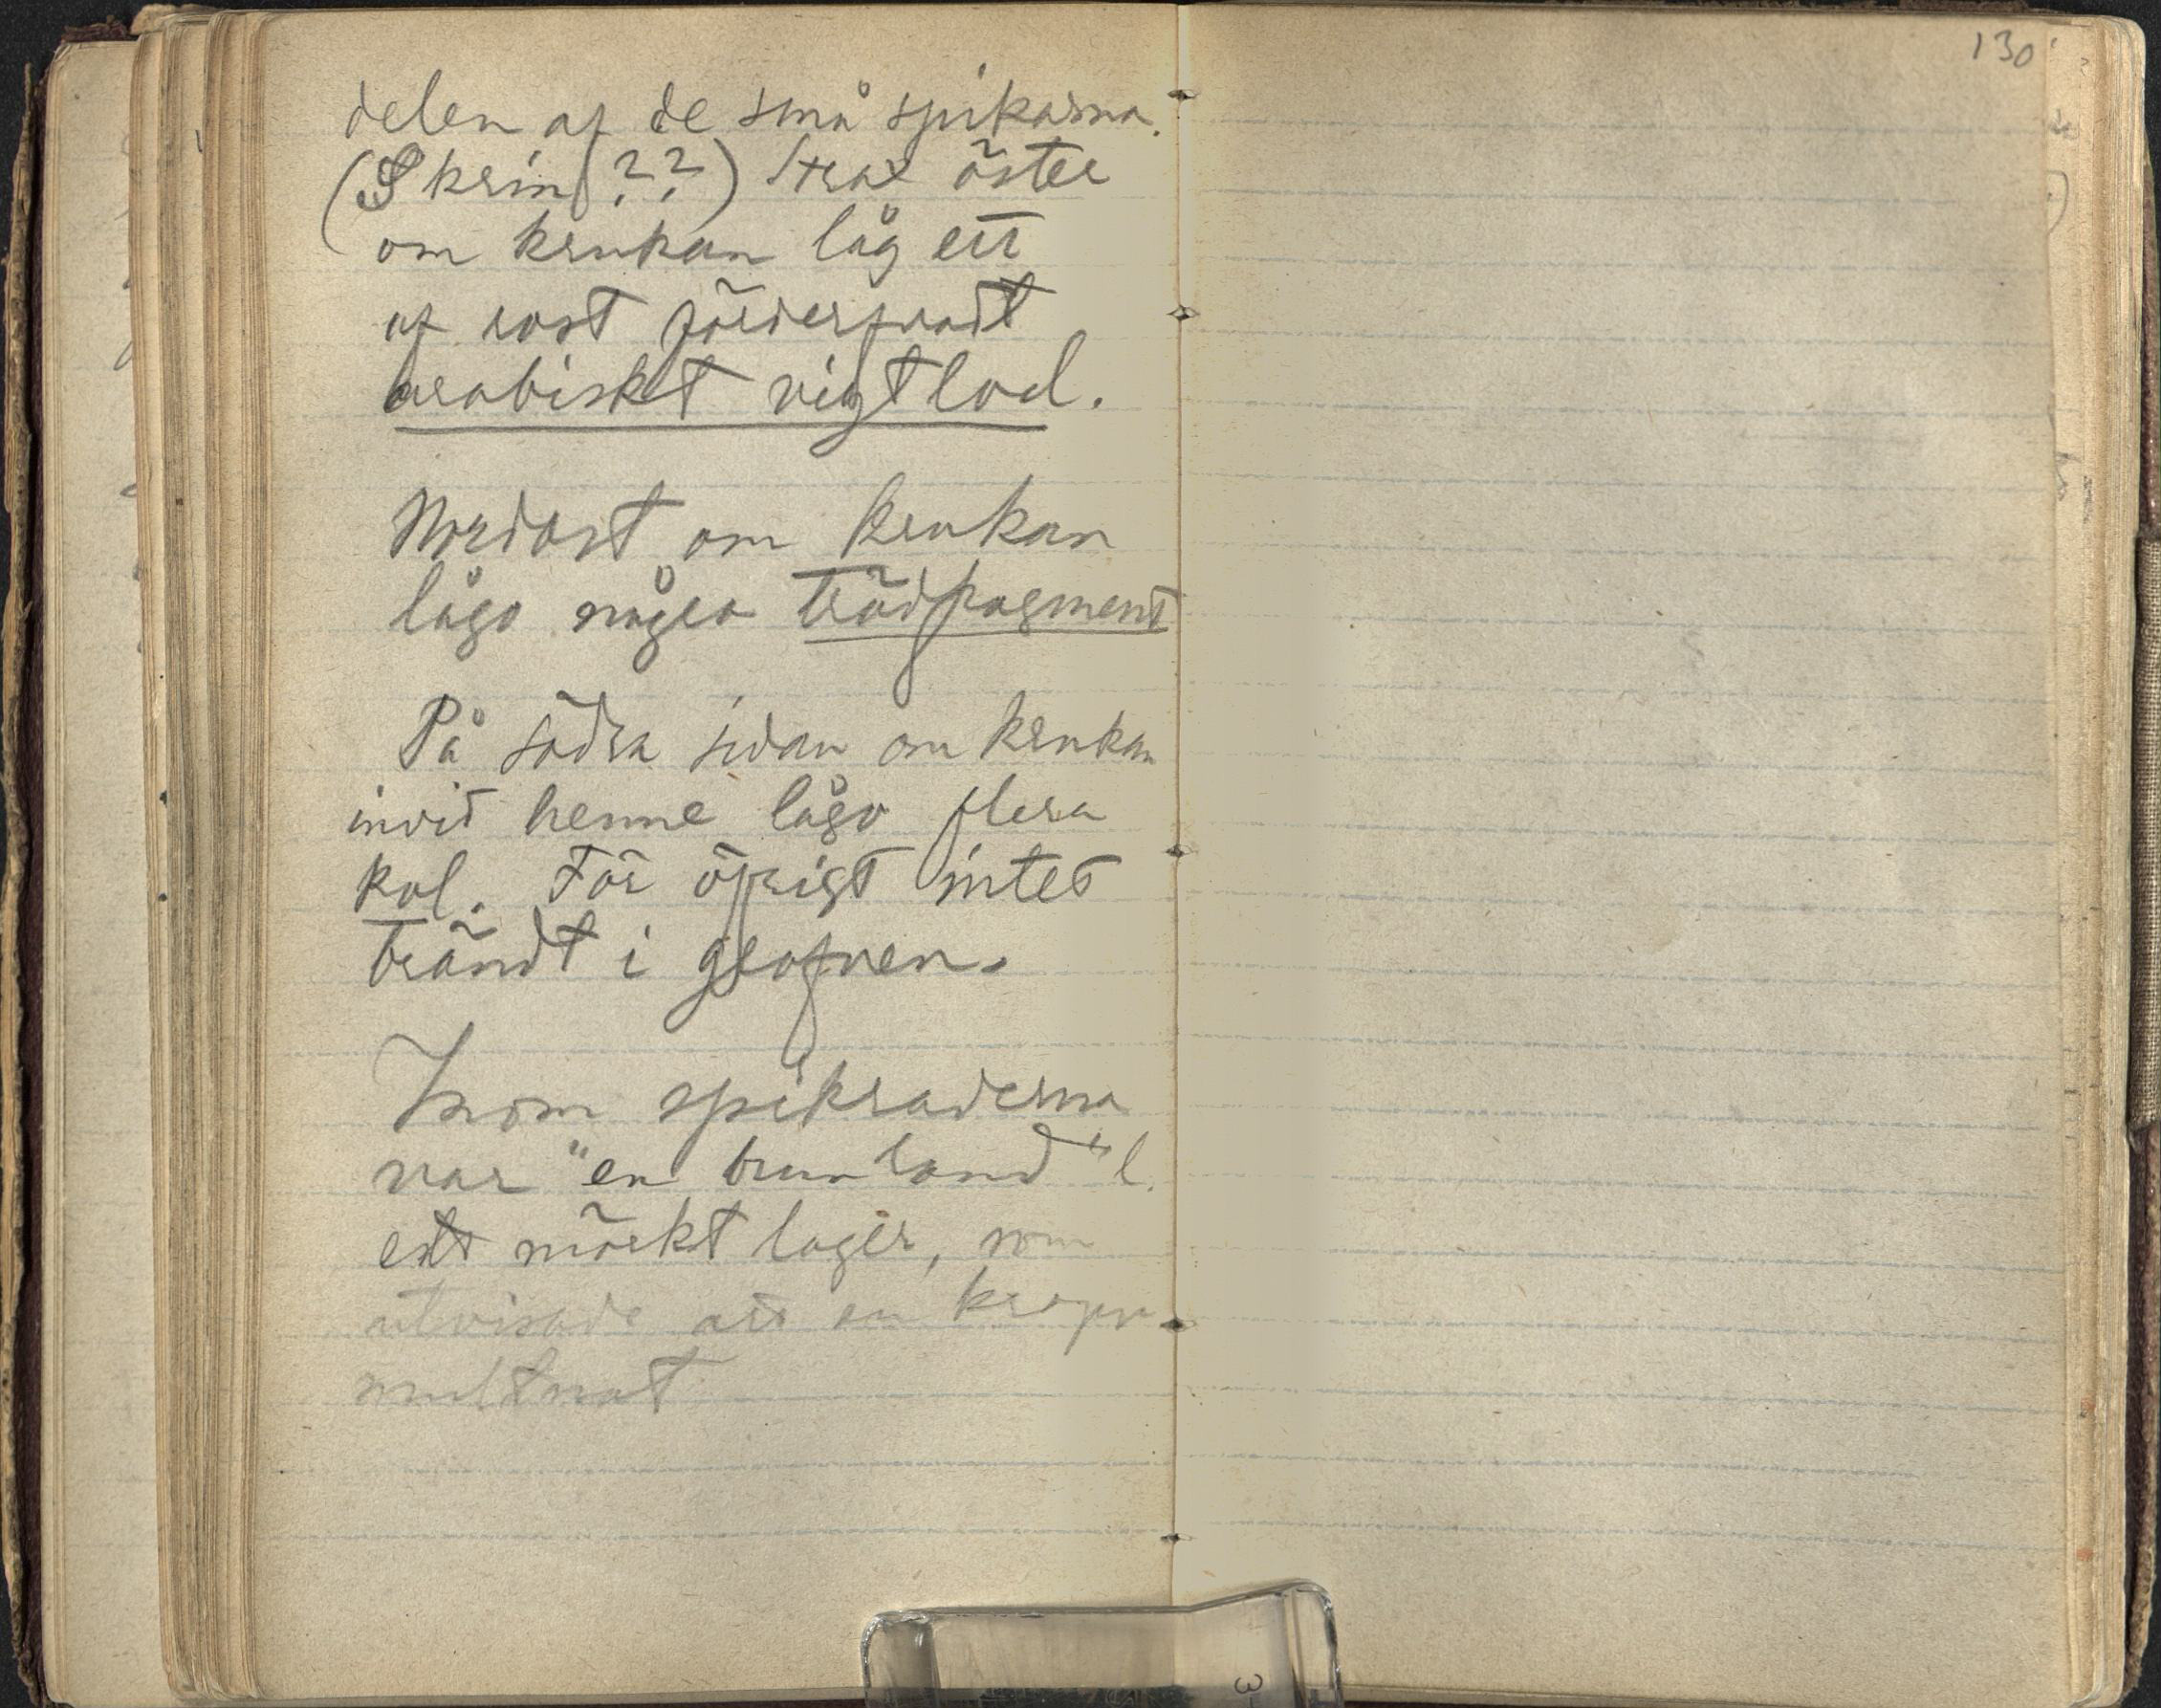 delen af de små spikarna.
(Skrin??) Strax öster
om krukan låg ett
af rost förderfvadt
arabiskt vigtlod.
Nordost om krukan
lågo några trädfragment
På södra sidan om krukan
invid henne lågo flera
kol. För öfrigt intet
brändt i grafven.
Inom spikraderna
var "en brun rand" l.
ett mörkt lager, som
utvisade att en kropp
multnat
130